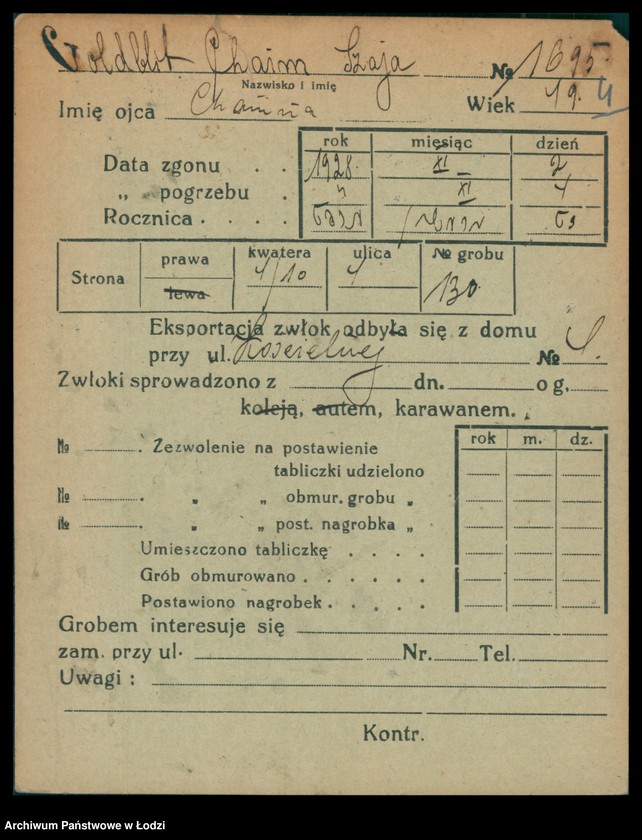 Goldblat Chaim Szaja № 1695
Nazwisko i imię
Imię ojca Chaima Wiek 19.
rok miesiąc dzień
Data zgonu . . 1928 XI 2
„ pogrzebu . " XI 4
Rocznica . . . .
Strona prawa kwatera ulica № grobu
lewa 130
Eksportacja zwłok odbyła się z domu
przy ul. Kościelnej №
Zwłoki sprowadzono z dn. og.
koleją, autem, karawanem.
rok m. dz.
№ . Zezwolenie na postawienie
tabliczki udzielono
№ . „ „ obmur. grobu „
№ . „ „ post. nagrobka „
Umieszczono tabliczkę . . . .
Grób obmurowano . . . . . .
Postawiono nagrobek . . . . .
Grobem interesuje się
zam. przy ul. Nr. Tel.
Uwagi :
Kontr.
Archiwum Państwowe w Łodzi